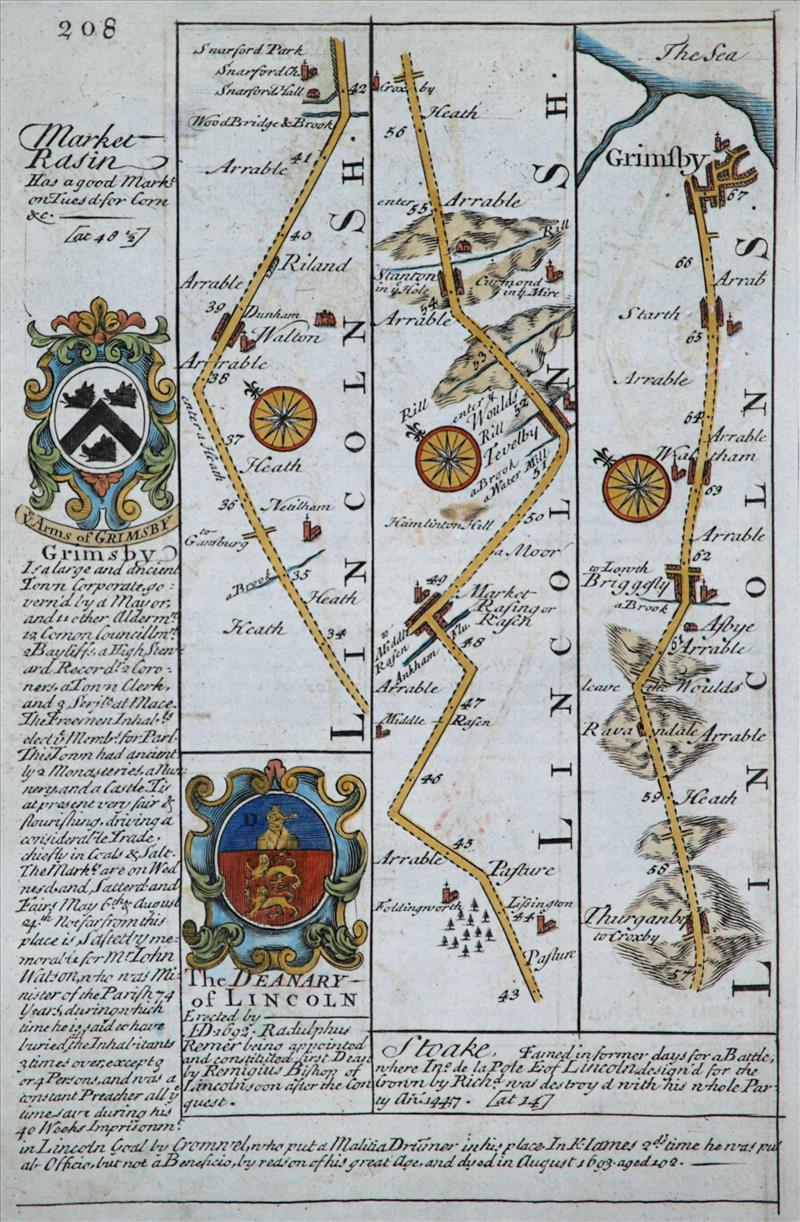 208
Market
Rasin
Has a good Markt
on Tuesd: for Corn
&c.
[at 48 ½]
ye Arms of GRIMSBY
Grimsby
Is a large and ancient
Town Corporate, go:
vern'd by a Mayor,
and 11 other Alderm:
12 Comon Councillmn.
2 Bayliffs, a High Stew
ard Record.r 2 Coro:
ners, a Town Clerk,
and 3 Serjts at Mace.
The Freemen Inhabts
elect 2 Membrs for Parl:
This Town had ancient
ly 2 Monasteries, a Nun
nery, and a Castle. Tis
at present very fair &
flourishing, driving a
considerable Trade,
chiefly in Coals & Salt.
The Markts are on Wed
nesd. and Satterd. and
Fairs May 6th & August
24th. Not far from this
place is Saltetby me:
morable for Mr Iohn
Watson, who was Mi:
nister of the Parish 74
Years, during which
time he is said to have
buried the Inhabitants
3 times over, except 3
or 4 Persons, and was a
constant Preacher all ye
time save during his
40 Weeks Imprisonmt
in Lincoln Goal by Cromwel, who put a Malitia Drumer in his place In K: Iames 2ds time he was put
ab Officio, but not a Beneficio, by reason of his great Age, and dyed in August 1693. aged 102.
Snarford Park
Snarford Ch.
Snarford Hall
42
Wood Bridge & Brook
41
Arrable
40
Riland
Arrable
39
Dunham
Walton
Arrable
38
enter a Heath
37
Heath
36
Netilham
to
Gansburg
a Brook
35
Heath
Heath
34
LINCOLN SH.
The DEANARY
of LINCOLN
Erected by
AD 1092. Radulphus
Remer being appointed
and constituted first Dean
by Remigius Bishop of
Lincoln, soon after the Con
quest.
Croxby
Heath
56
enter
55
Arrable
Rill
Stanton
in ye Hole
Curmond
in ye Mire
54
Arrable
53
Rill
enter ye
Woulds
52
Rill
Tevelby
a Brook
a Water Mill
51
Hamlinton Hill
50
a Moor
49
Market
Rasing or
Rasen
to
Middle
Rasen
Ankham Flu.
48
Arrable
47
Middle Rasen
46
45
Arrable
Pasture
Foldingworth
Lissington
44
Pasture
43
LINCOLN SH.
The Sea
Grimsby
67
66
Arrab
Starth
65
Arrable
64
Arrable
Waltham
63
Arrable
62
to Lowth
Briggesly
a Brook
Asbye
61
Arrable
leave the Woulds
Ravawndale
Arrable
59
Heath
58
Thurganby
to Croxby
57
LINCOLN S.
Stoake, Famed in former days for a Battle,
where Ino. de la Pole E of Lincoln design'd for the
Crown by Richd was destroy'd with his whole Par
ty An: 1447. [at 14]